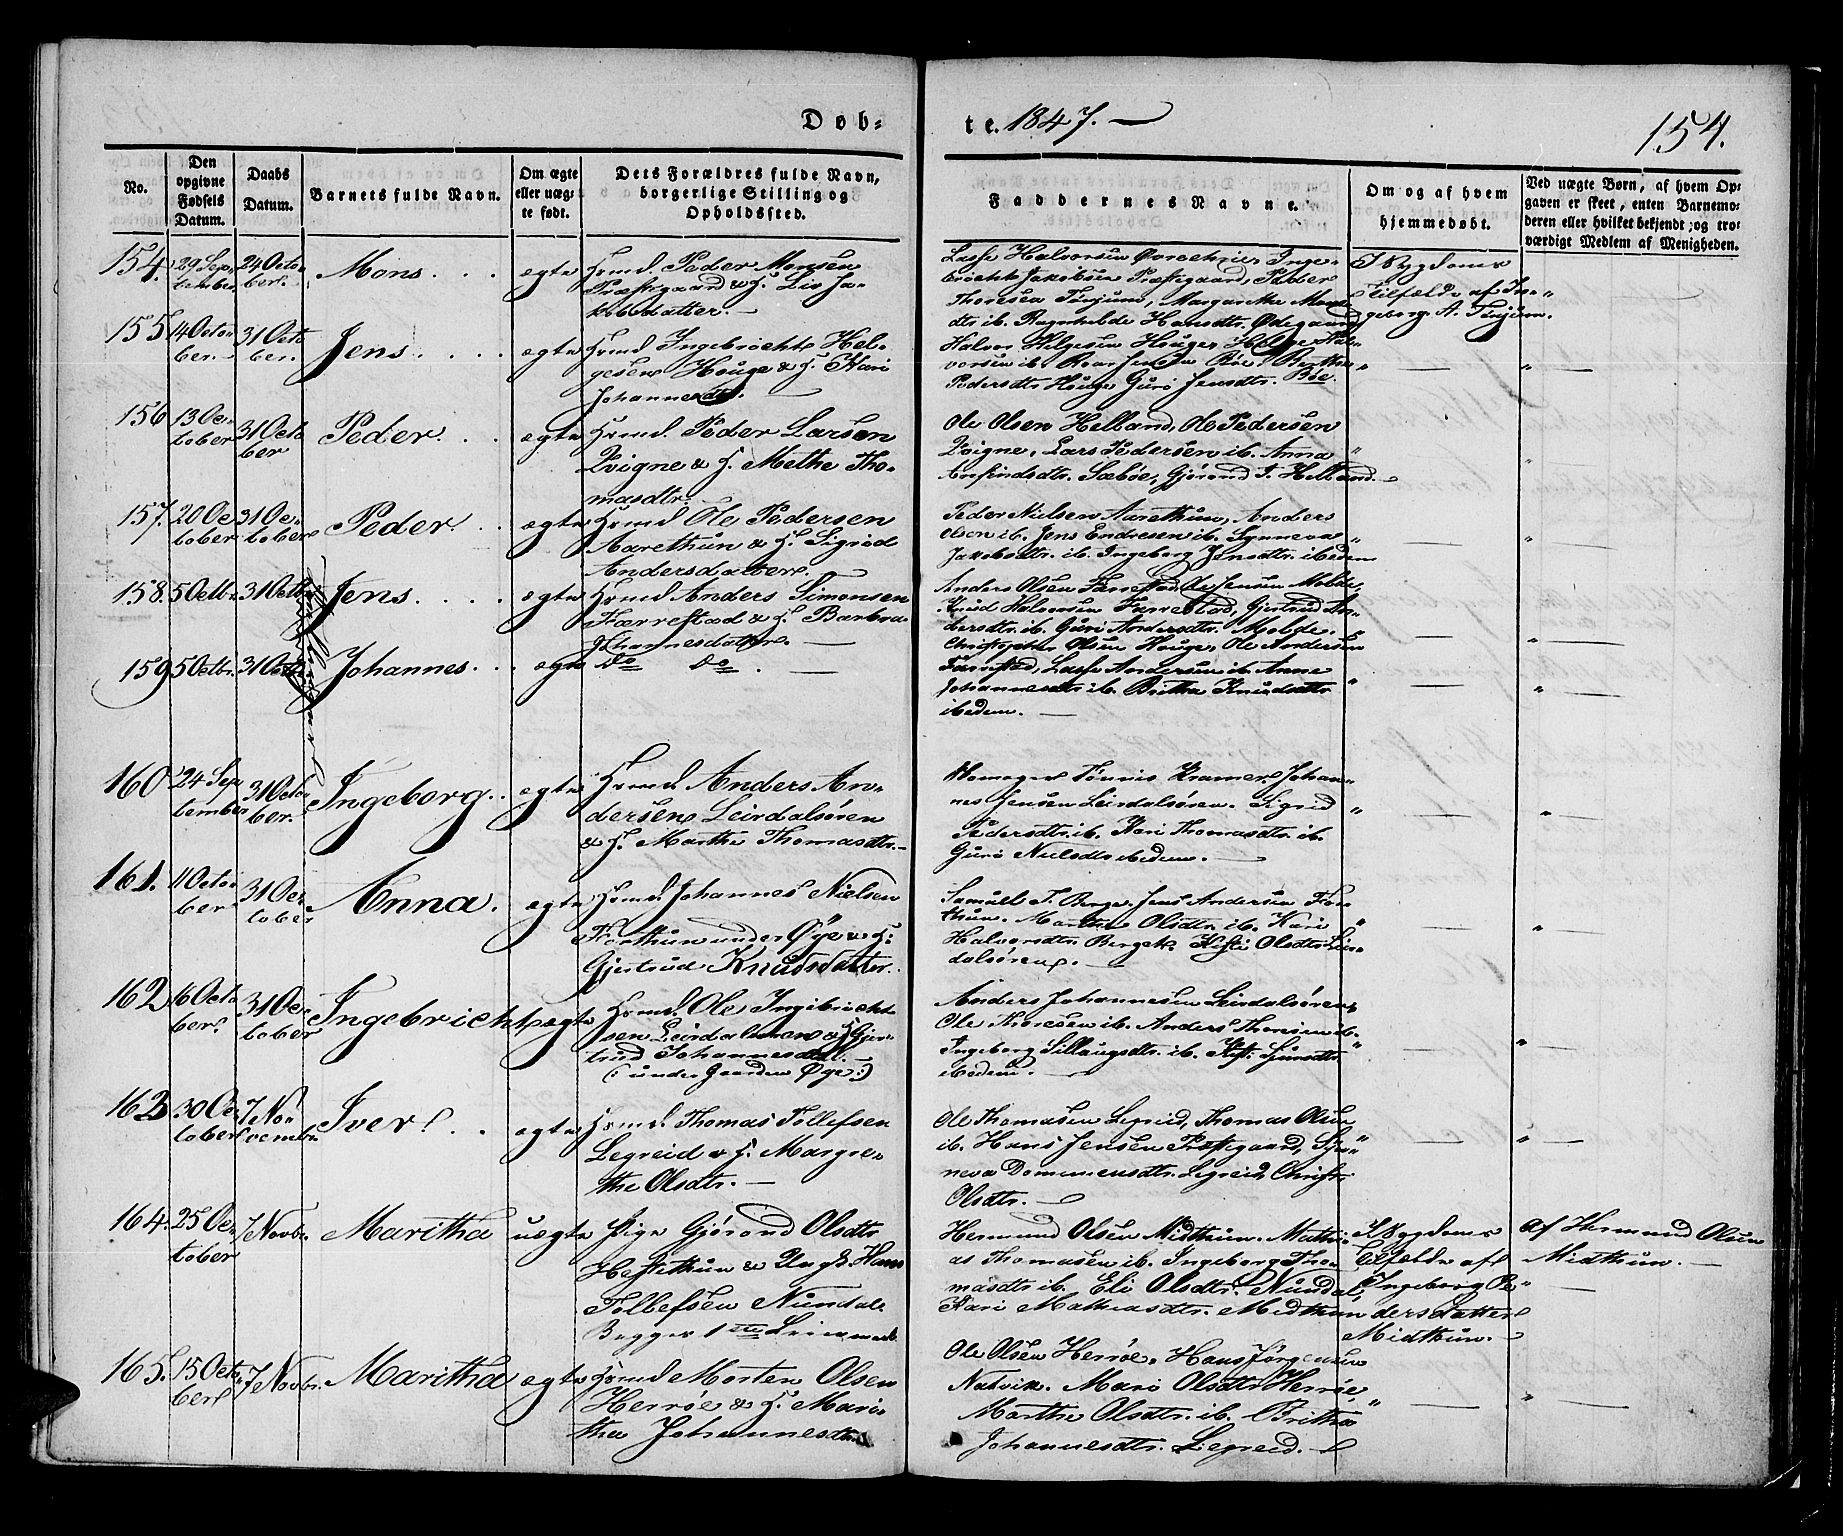 Døb-
te. 1847.
154.
No.
Den opgivne Fødsels Datum.
Daabs Datum.
Barnets fulde Navn.
Om ægte eller uægte født.
Dets Forældres fulde Navn, borgerlige Stilling og Opholdssted.
Faddernes Navne.
Om og af hvem hjemmedøbt.
Ved uægte Børn, af hvem Opgaven er skeet, enten Barnemoderen eller hvilket bekjendt, og troværdigt Medlem af Menigheden.
154. 29 September 24 October. Mons. ægte
Hsmd Peder Monsen
Præstegaard & H. Liv Ja-
kobsdatter.
Lasse Halvorsen
Jakobsen Præstegaard, Peder
Thoresen Tønjum, Margarethe Monsdtr
ib. Ragnhilde Hansdtr. Ødegaard
I Sygdoms
Tilfælde af In-
geborg A. Tønjum.
155 4 October. 31 October. Jens. ægte
Hsmd Ingebricht Hel-
gesen Houge & H. Kari
Johannesdtr.
Halvor Helgesen Houge, Helge Hal-
vorsen ib. Roar Jensen Bøe, Brithe
Pedersdtr Houge Guro Jensdtr. Bøe.
156 13 October 31 October Peder. ægte
Hsmd. Peder Larsen
Qvigne & H. Methe Tho-
masdtr.
Ole Olsen Helland, Ole Pedersen
Qvigne, Lars Pedersen ib. Anna
Anfindsdtr. Sæbøe, Gjørond T. Helland.
157. 20 October 31 October Peder. ægte
Hsmd Ole Pedersen
Aarethun & H. Sigrid
Andersdatter.
Peder Nielsen Aarethun, Anders
Olsen ib. Jens Endresen ib. Synneva
Jakobsdtr. ib. Ingeborg Jensdtr. ibedem
158. 5 Octbr. 31 Octb. Jens. ægte
Hsmd Anders Simonsen
Færrestad & H. Barbra
Johannesdatter.
Anders Olsen Færrestad, Ole Jensen Molde,
Knud Halvorsen Færrestad, Gjertrud An-
dersdtr. ib. Guri Andersdtr. Molde.
159 5 Octbr. 31 Octb. Johannes. ægte
do do.
Christopher Olsen Houge, Ole Andersen
Færrestad, Lasse Andersen ib. Anne
Johannesdtr. ib. Brithe Knudsdtr
ibedem.
160 24 September 31 October. Ingeborg. ægte
Hsmd Anders An-
dersen Leirdalsøren
& H. Marthe Thomasdtr.
Tønnis Kramer, Johan-
nes Jensen Leirdalsøren. Sigrid
Pedersdtr. ib. Kari Thomasdtr. ib.
Guro Nielsdtr ibedem.
161. 4 October 31 October Anna. ægte
Hsmd. Johannes Nielsen
Forthun under Øye & H.
Gjertrud Knudsdatter.
Samuel T. Berge. Jens Andersen For-
thun. Marthe Olsdtr. ib. Kari
Halvorsdtr. Berge. Kisti Olsdtr Leir-
dalsøren.
162 6 October. 31 October Ingebricht ægte
Hsmd. Ole Ingebricht-
sen Leirdalsøren & H. Gjer-
trud Johannesdtr.
(: under Gaarden Øye :)
Anders Johannesen Leirdalsøren,
Ole Thoresen ib. Anders Thoresen ib.
Ingeborg Sillaugsdtr. ib. Kisti
ibedem.
163 30 October 7 Novembr. Iver. ægte
Hsmd. Thomas Tollefsen
Legreid & H. Margre-
the Olsdtr.
Ole Thomassen Legreid, Thomas Olsen
ib. Hans Jensen Præstegaard, Syn-
neva Domenensdtr. Legreid, Christi
Olsdtr.
164. 25 October 7 Novbr. Maritha uægte
Pige Gjørond Olsdtr
Hestethun & Ungk. Hans
Tollefsen Nundal
Begges 1ste Leiermaal
Hermund Olsen Midthun. Mathi-
as Thomasen ib. Ingeborg Tho-
masdtr ib. Eli Olsdtr. Nundal,
Kari Mathiasdtr. Midthun
I Sygdoms
Tilfælde af
Ingeborg Pe-
dersdatter
Midthun.
af Hermund Olsen
Midthun.
165. 15 October 7 Novbr. Maritha ægte
Hsmd Morten Olsen
Herrøe & H. Mari-
tha Johannesdtr.
Ole Olsen Herrøe. Hans Jørgensen
Natvik. Mari Olsdtr. Herrøe,
Marthe Olsdtr. ib. Brithe
Johannesdtr. Legreid.